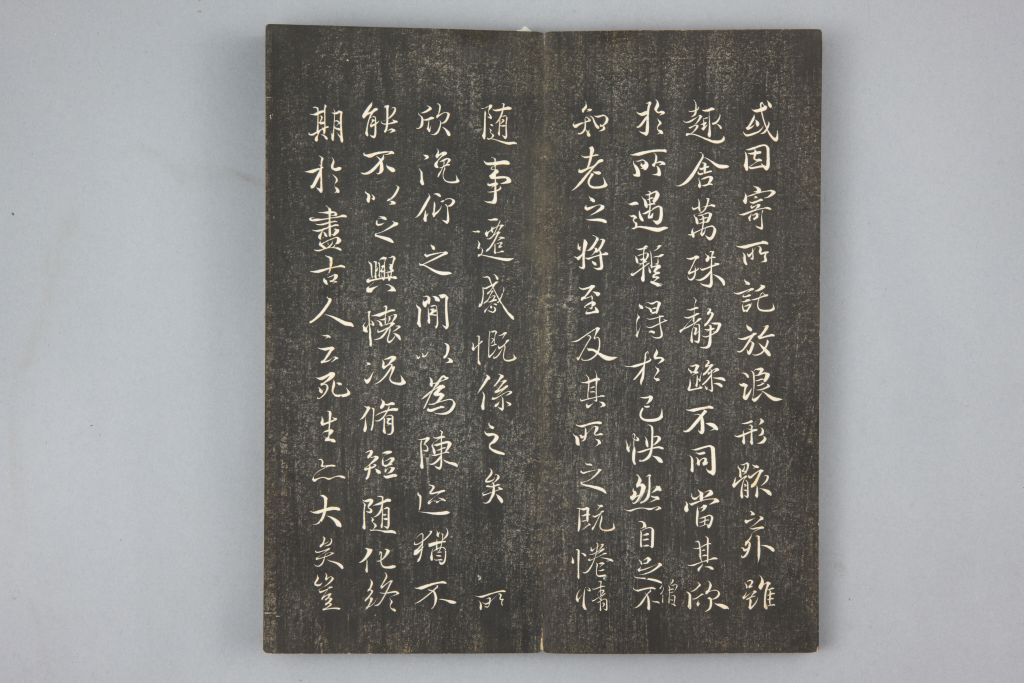 或因寄所託放浪形骸之外雖
趣舍萬殊静躁不同當其欣
僧
於所遇蹔得於己怏然自足不
知老之將至及其所之既惓情
随事遷感慨係之矣 所
欣俛仰之閒以為陳迹猶不
能不以之興懷況脩短随化終
期於盡古人云死生亦大矣豈